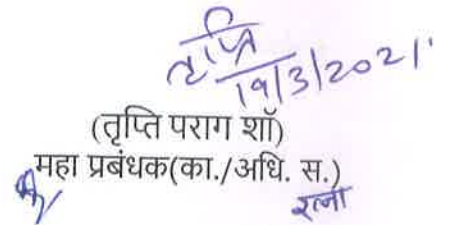 तृप्ति
19/3/2021
(तृप्ति पराग शॉ)
महा प्रबंधक(का./अधि. स.)
रत्ना